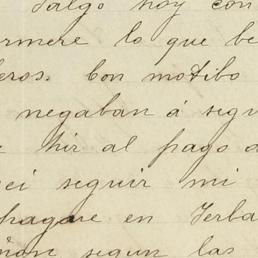 Salgo hoy con
ermere lo que be
eros. Con motibo
negaban á segu
hir al pago d
ei seguir mi
pagare en Yerba
segun las